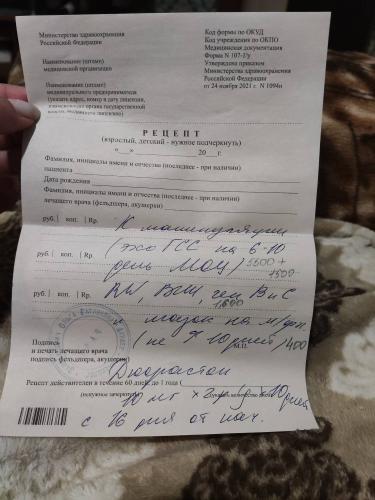 Министерство здравоохранения
Российской Федерации
Наименование (штамп)
медицинской организации
Наименование (штамп)
индивидуального предпринимателя
(указать адрес, номер и дату лицензии,
наименование органа государственной
власти, выдавшего лицензию)
Код формы по ОКУД
Код учреждения по ОКПО
Медицинская документация
Форма N 107-1/у
Утверждена приказом
Министерства здравоохранения
Российской Федерации
от 24 ноября 2021 г. N 1094н
РЕЦЕПТ
(взрослый, детский - нужное подчеркнуть)
"__" ________ 20__ г.
Фамилия, инициалы имени и отчества (последнее - при наличии)
пациента
Дата рождения
Фамилия, инициалы имени и отчества (последнее - при наличии)
лечащего врача (фельдшера, акушерки)
руб. | коп. | Rp.
К манипуляции
(эхо ГСС на 6-10
руб. | коп. | Rp.
день МОЦ) 5500 +
1500
руб. | коп. | Rp.
RW, ВИЧ, геп. В и С
мазок на м/фл.
Подпись
и печать лечащего врача
подпись фельдшера, акушерки)
М.П.
(не > 10 дней) 400
Дюфастон
Рецепт действителен в течение 60 дней, до 1 года (
(нужное зачеркнуть)
10 мг × 2 р/д × 10 дней
с 16 дня от нач.